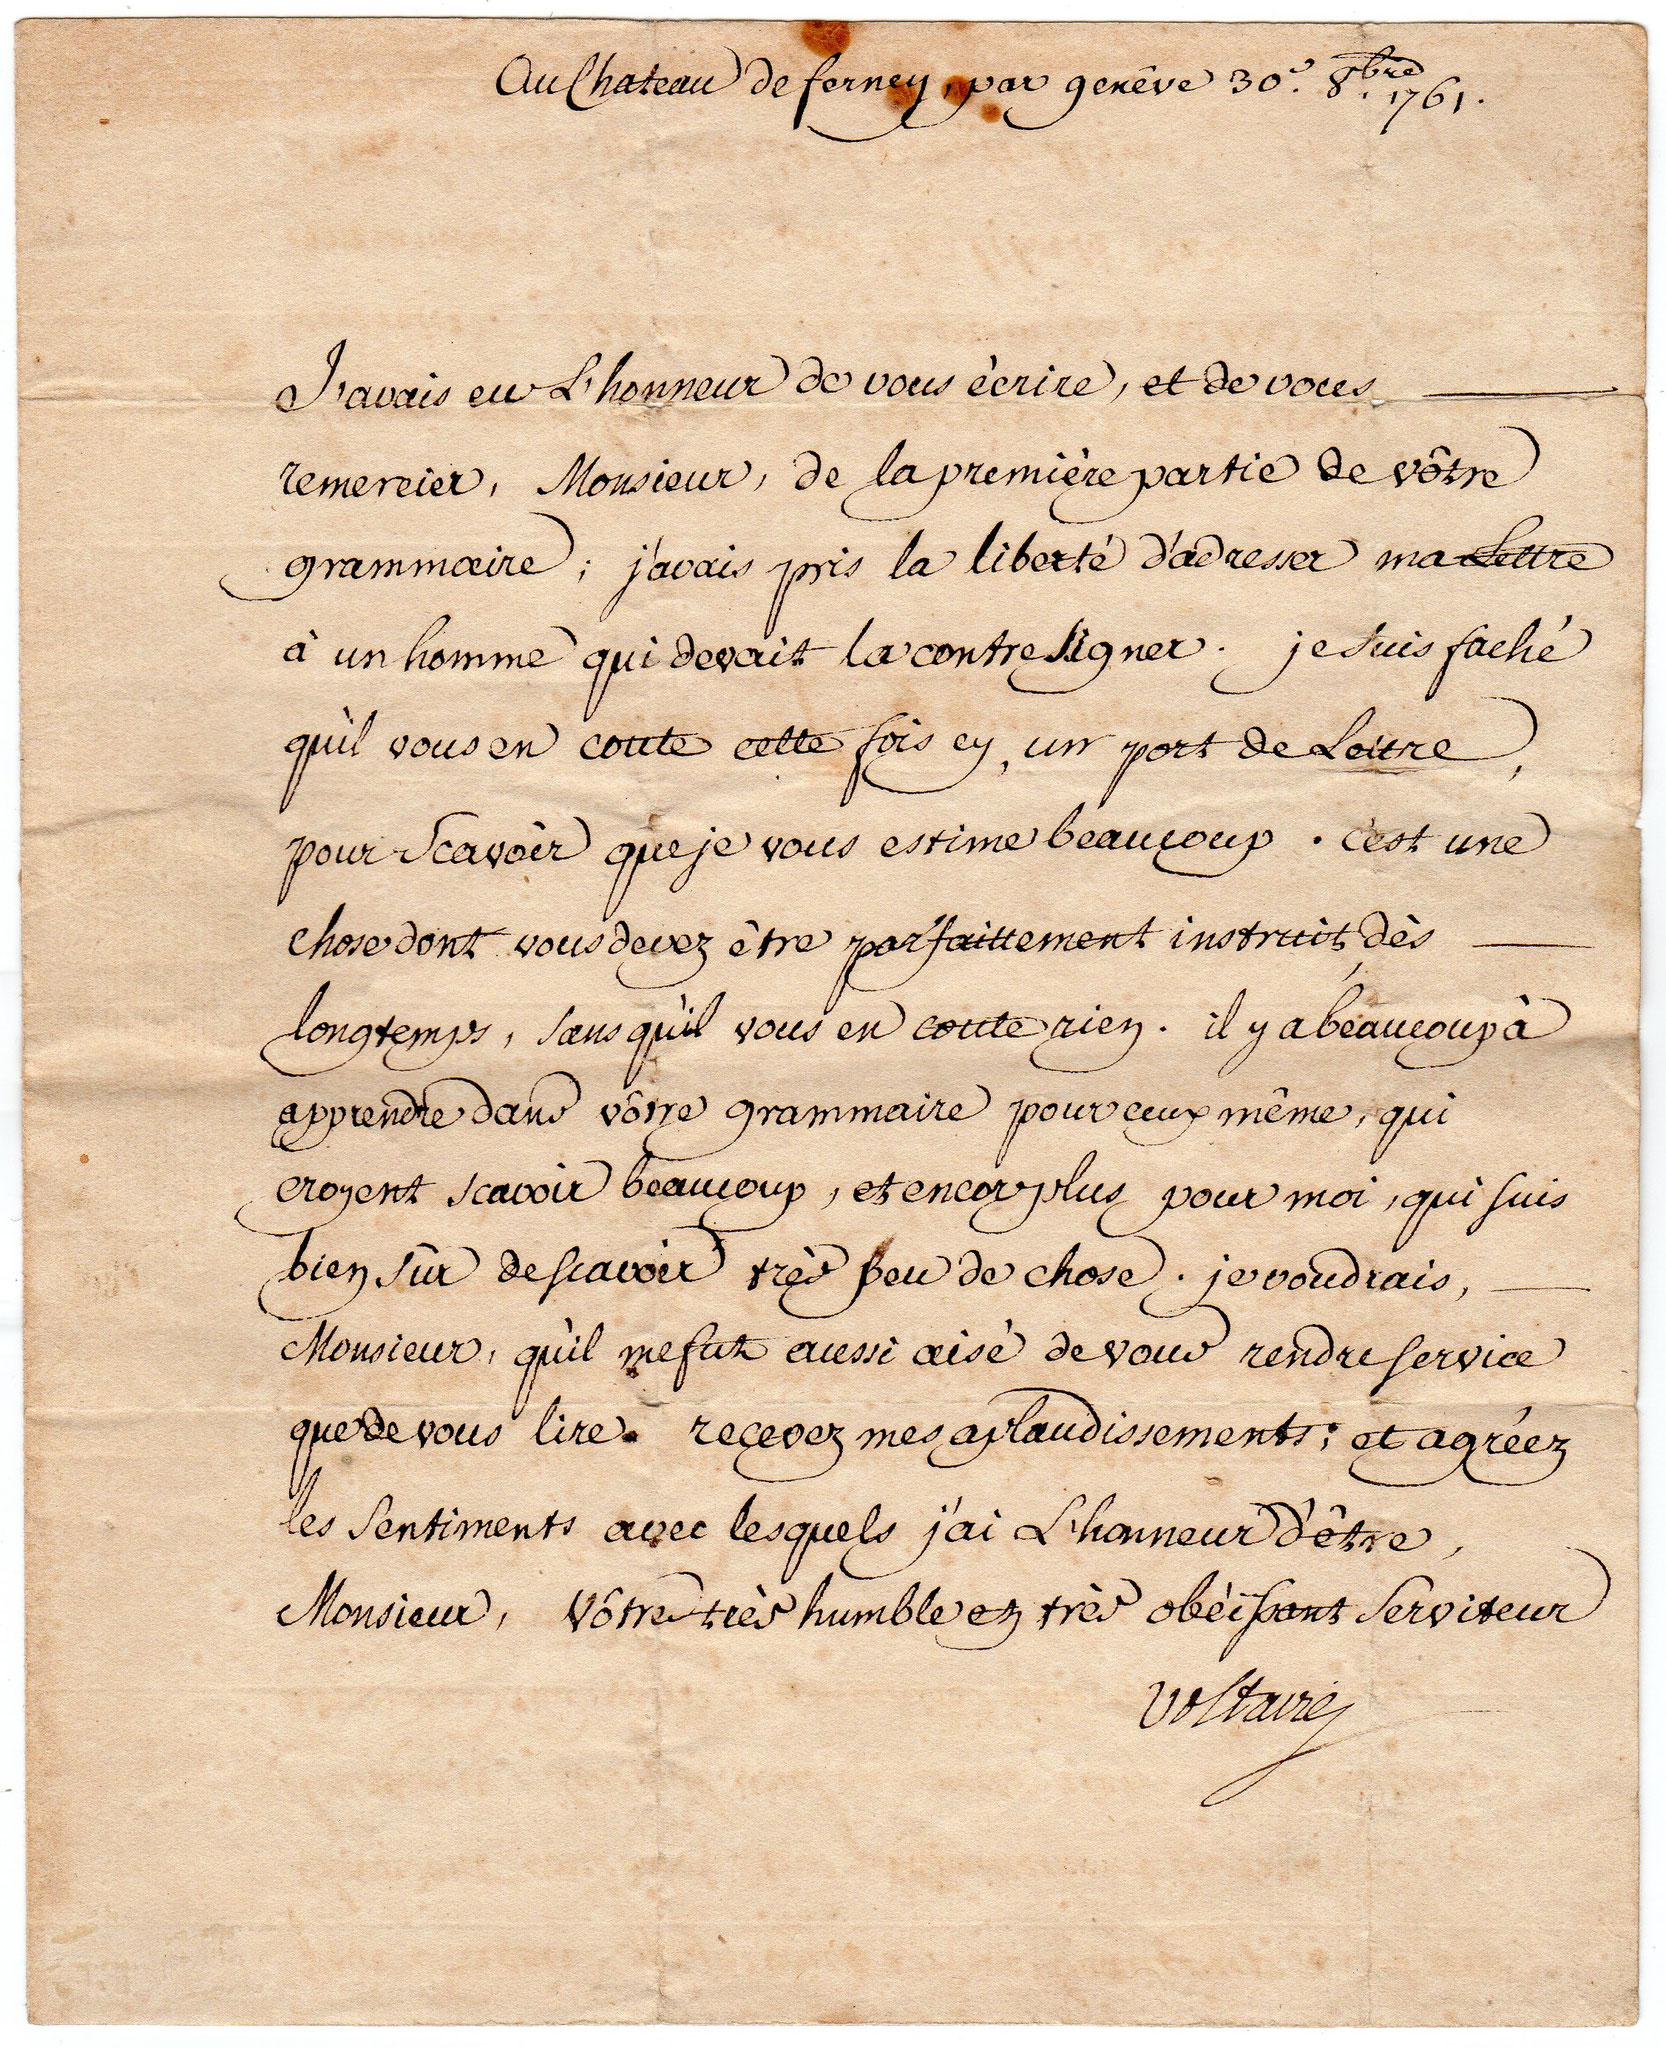 Au Chateau de ferney, par genêve 30.e 8.bre 1761.
J'avais eu L'honneur de vous écrire, et de vous
remercier, Monsieur, de la première partie de vôtre
grammaire ; j'avais pris la liberté d'adresser ma Lettre
à un homme qui devait la contresigner. je suis faché
qu'il vous en coute cette fois cy, un port de Lettre,
pour scavoir que je vous estime beaucoup. c'est une
chose dont vous devez être parfaittement instruit, dès
longtemps, sans qu'il vous en coute rien. il y a beaucoup à
apprendre dans vôtre grammaire pour ceux même, qui
croyent scavoir beaucoup, et encor plus pour moi, qui suis
bien sûr de scavoir très peu de chose. je voudrais,
Monsieur, qu'il me fut aussi aisé de vous rendre service
que de vous lire. recevez mes aplaudissements; et agréez
les sentiments avec lesquels j'ai L'honneur d'être,
Monsieur, Vôtre très humble et très obéissant serviteur
Voltaire